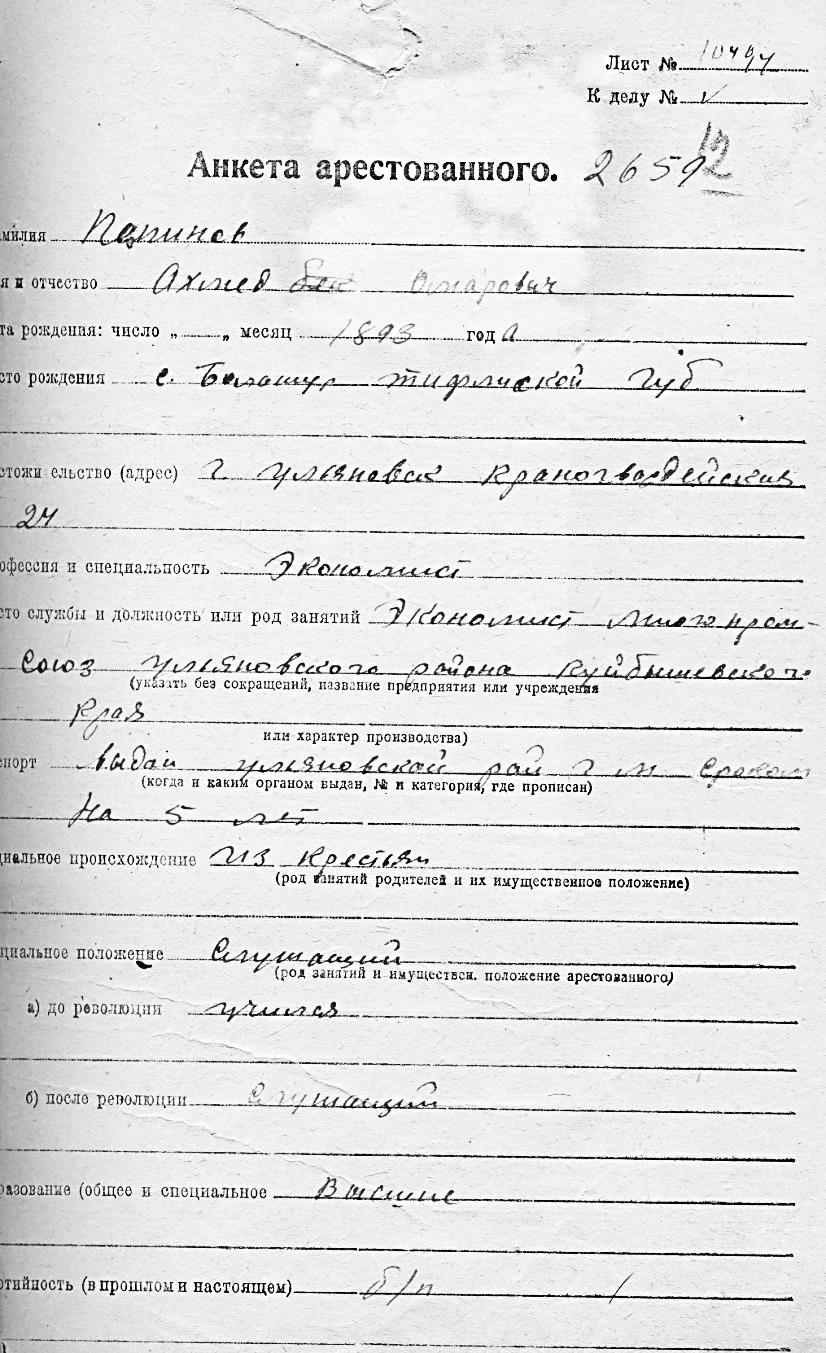 Лист № 10494
К делу № V
12
Анкета арестованного. 2659
милия Пепинов
я и отчество Ахмед бек Омарович
та рождения: число „ „ месяц 1893 год а
сто рождения с. Балажур тифлиской губ
стожи ельство (адрес) г ульяновск Краногвардейская
24
офессия и специальность Экономист
сто службы и должность или род занятий Экономист Многопром-
Союз ульяновского района Куйбышевского
(указать без сокращений, название предприятия или учреждения
Края
или характер производства)
спорт выдан ульяновской рай г м сроком
(когда и каким органом выдан, № и категория, где прописан)
На 5 лет
циальное происхождение из крестьян
(род занятий родителей и их имущественное положение)
циальное положение Служащий
(род занятий и имуществен. положение арестованного)
а) до революции учился
б) после революции Служащий
разование (общее и специальное Высшие
ртийность (в прошлом и настоящем) б/п